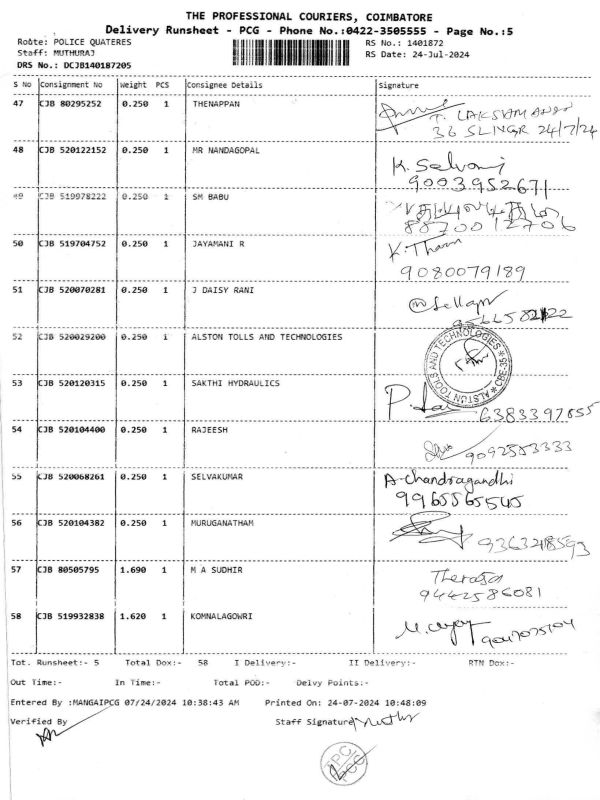 THE PROFESSIONAL COURIERS, COIMBATORE
Delivery Runsheet - PCG - Phone No.:0422-3505555 - Page No.:5
Route: POLICE QUATERES RS No.: 1401872
Staff: MUTHURAJ RS Date: 24-Jul-2024
DRS No.: DCJB140187205
S No Consignment No Weight PCS Consignee Details Signature
47 CJB 80295252 0.250 1 THENAPPAN
T. LAKSHMANAN
36 SLINGR 24/7/24
48 CJB 520122152 0.250 1 MR NANDAGOPAL K. Selvami
9003952671
49 CJB 519978222 0.250 1 SM BABU
8870012706
50 CJB 519704752 0.250 1 JAYAMANI R K. Tham
9080079189
51 CJB 520070281 0.250 1 J DAISY RANI
52 CJB 520029200 0.250 1 ALSTON TOLLS AND TECHNOLOGIES
ALSTON TOOLS AND TECHNOLOGIES * CBE-35 *
53 CJB 520120315 0.250 1 SAKTHI HYDRAULICS
6383397855
54 CJB 520104400 0.250 1 RAJEESH
9092583333
55 CJB 520068261 0.250 1 SELVAKUMAR A-chandragandhi
9965565545
56 CJB 520104382 0.250 1 MURUGANATHAM
57 CJB 80505795 1.690 1 M A SUDHIR Therasa
9442586081
58 CJB 519932838 1.620 1 KOMNALAGOWRI
Tot. Runsheet:- 5 Total Dox:- 58 I Delivery:- II Delivery:- RTN Dox:-
Out Time:- In Time:- Total POD:- Delvy Points:-
Entered By :MANGAIPCG 07/24/2024 10:38:43 AM Printed On: 24-07-2024 10:48:09
Verified By Staff Signature